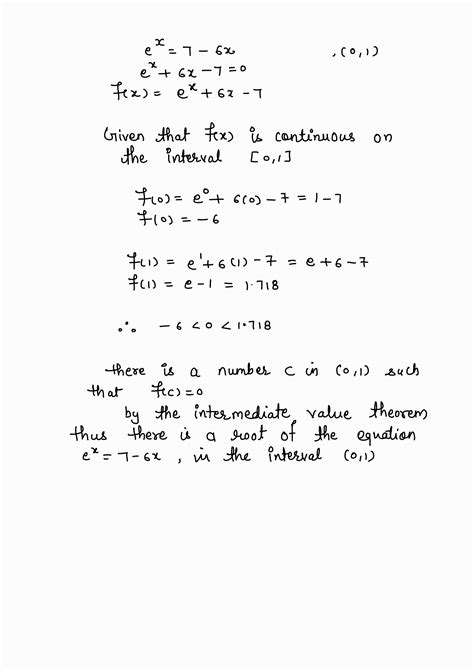 e^x = 7 - 6x , (0,1)
e^x + 6x - 7 = 0
f(x) = e^x + 6x - 7
Given that f(x) is continuous on
the interval [0,1]
f(0) = e^0 + 6(0) - 7 = 1 - 7
f(0) = -6
f(1) = e^1 + 6(1) - 7 = e + 6 - 7
f(1) = e - 1 = 1.718
∴ -6 < 0 < 1.718
there is a number c in (0,1) such
that f(c) = 0
by the intermediate value theorem
thus there is a root of the equation
e^x = 7 - 6x , in the interval (0,1)